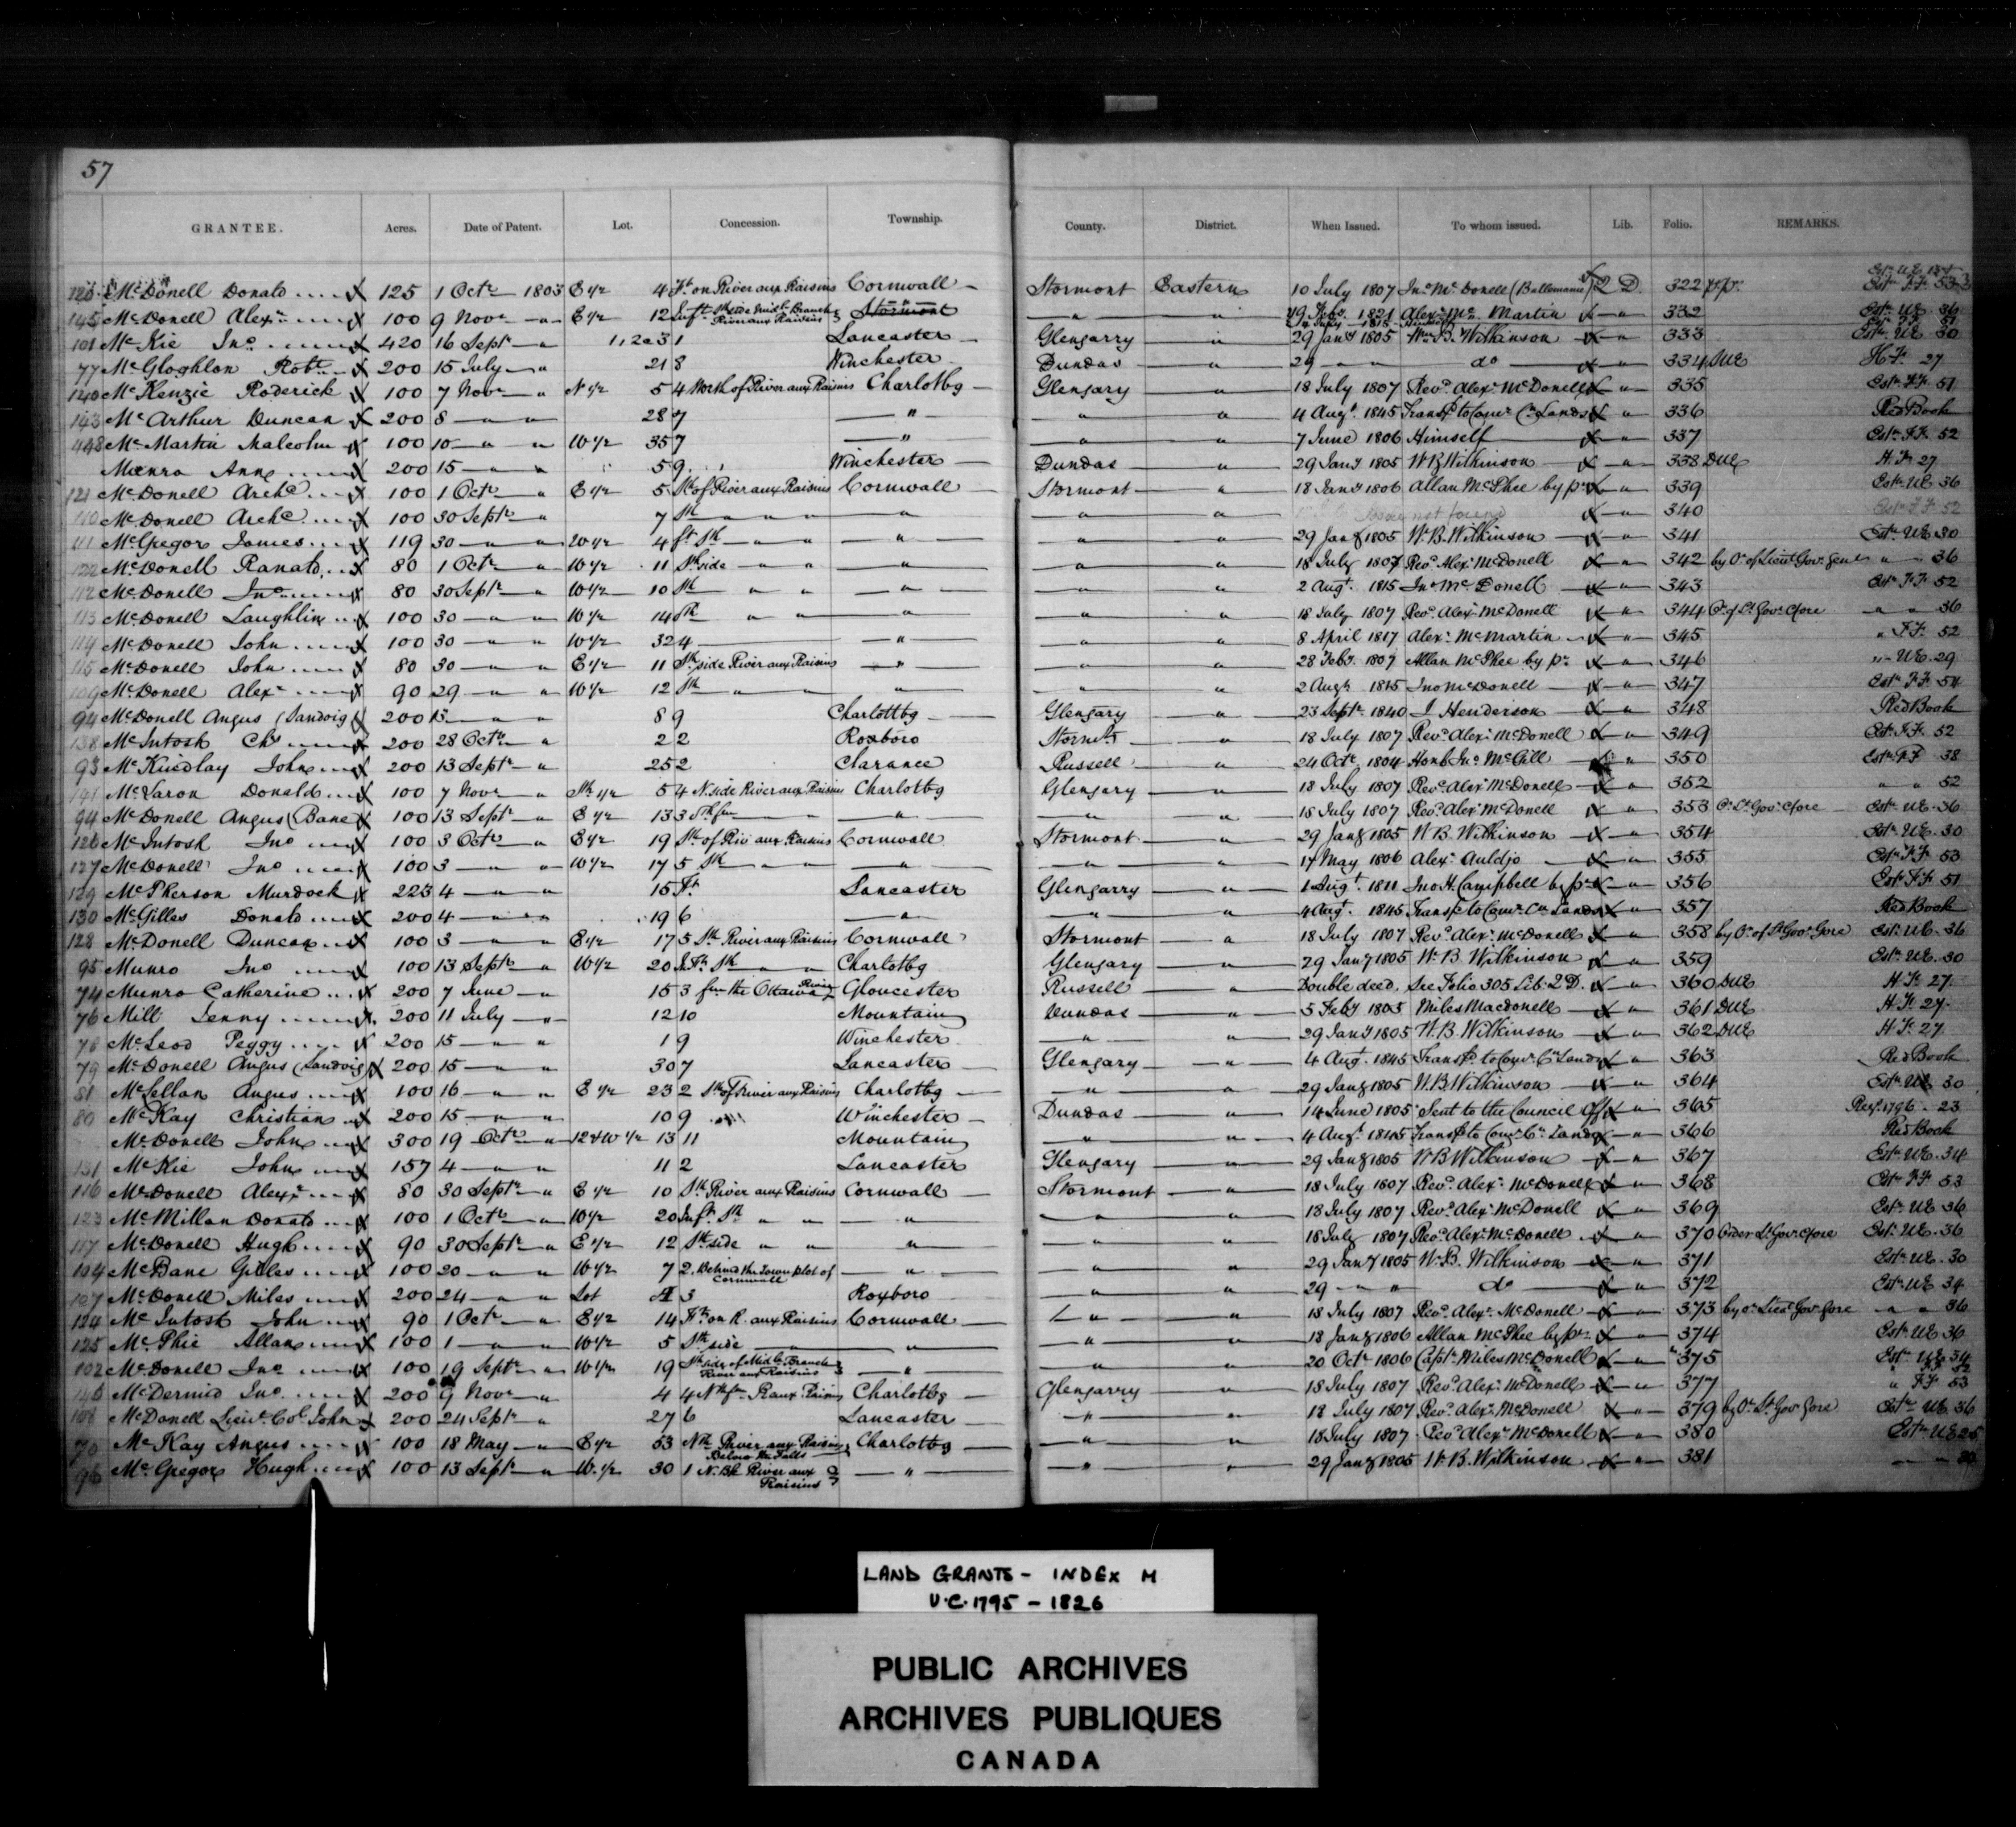 57
GRANTEE. Acres. Date of Patent. Lot. Concession. Township. County. District. When Issued. To whom issued. Lib. Folio. REMARKS.
McDonell Donald 125 1 Octr 1803 E 1/2 4 Ft on River aux Raisins Cornwall Stormont Eastern 10 July 1807 Jno McDonell 2 D. 322
145 McDonell Alexr 100 9 Novr " E 1/2 12 Stormont " " 19 Feby. 1821 Alexr Martin " 332 Estn UE 36
101 McKie Jno 420 16 Septr " 1, 2 & 3 1 Lancaster Glengarry " 29 Jany 1805 Wm B. Wilkinson " 333 Estn UE 30
77 McGloghlon Robt 200 15 July " 21 8 Winchester Dundas " 29 " " do " 334 DUE H.F. 27
140 McKenzie Roderick 100 7 Novr " N 1/2 5 4 North of River aux Raisins Charlotbg Glengary " 18 July 1807 Revd Alexr McDonell " 335 Estn F.F. 51
143 McArthur Duncan 200 8 " " 28 7 " " " 4 Augt 1845 Transfd to Comr Cn Lands " 336 Red Book
148 McMartin Malcolm 100 10 " " W 1/2 35 7 " " " 7 June 1806 Himself " 337 Estn F.F. 52
Munro Ann 200 15 " " 5 9 Winchester Dundas " 29 Jany 1805 W B Wilkinson " 338 DUE H.F. 27
121 McDonell Archd 100 1 Octr " E 1/2 5 Sth of River aux Raisins Cornwall Stormont " 18 Jany 1806 Allan McPhee by pr " 339 Estn UE 36
110 McDonell Archd 100 30 Septr " 7 Sth " " " " " " not found " 340 Estn F.F. 52
111 McGregor James 119 30 " " W 1/2 4 ft Sth " " " " " 29 Jany 1805 W. B. Wilkinson " 341 Estn UE 30
122 McDonell Ranald 80 1 Octr " W 1/2 11 Sth side " " " " " 18 July 1807 Revd Alexr McDonell " 342 by Or of Lieut Govr Gen " " 36
112 McDonell Jno 80 30 Septr " W 1/2 10 Sth " " " " " 2 Augt. 1815 Jno McDonell " 343 Estn F.F. 52
113 McDonell Laughlin 100 30 " " W 1/2 14 Sth " " " " " 18 July 1807 Revd Alexr McDonell " 344 Or of Lt Govr Gore " " 36
114 McDonell John 100 30 " " W 1/2 32 4 " " " 8 April 1817 Alexr McMartin " 345 " F.F. 52
115 McDonell John 80 30 " " E 1/2 11 Sth side River aux Raisins " " " 28 Feby. 1807 Allan McPhee by pr " 346 " UE 29
109 McDonell Alexr 90 29 " " W 1/2 12 Sth " " " " " 2 Augt 1815 Jno McDonell " 347 Estn F.F. 54
94 McDonell Angus (Sandoig) 200 13 " " 8 9 Charlottbg Glengary " 23 Septr 1840 J Henderson " 348 Red Book
138 McIntosh Chs 200 28 Octr " 2 2 Roxboro Stormt " 18 July 1807 Revd Alexr McDonell " 349 Est. F.F. 52
93 McKindlay John 200 13 Septr " 25 2 Clarance Russell " 24 Octr 1804 Honb Jno McGill " 350 Estn F.F. 38
141 McLaron Donald 100 7 Novr " Sth 1/2 5 4 N. side River aux Raisins Charlotbg Glengary " 18 July 1807 Revd Alexr McDonell " 352 " " 52
94 McDonell Angus (Bane 100 13 Septr " E 1/2 13 3 " " " " " 18 July 1807 Revd Alexr McDonell " 353 Or Lt Govr Gore Estn UE 36
126 McIntosh Jno 100 3 Octr " E 1/2 19 Sth of Riv aux Raisins Cornwall Stormont " 29 Jany 1805 W B. Wilkinson " 354 Estn UE 30
127 McDonell Jno 100 3 " " W 1/2 17 5 Sth " " " " " 17 May 1806 Alexr Auldjo " 355 Estn F.F. 53
129 McPherson Murdock 223 4 " " 15 Ft Lancaster Glengarry " 1 Augt 1811 Jno H. Campbell by pr " 356 Estn F.F. 51
130 McGilles Donald 200 4 " " 19 6 " " " 4 Augt. 1845 Transfd to Comr Cn Lands " 357 Red Book
128 McDonell Duncan 100 3 " " E 1/2 17 5 Sth River aux Raisins Cornwall Stormont " 18 July 1807 Revd Alexr McDonell " 358 by Or of Lt Govr Gore Estn UE 36
95 Munro Jno 100 13 Septr " W 1/2 20 Sth " " Charlotbg Glengary " 29 Jany 1805 W. B. Wilkinson " 359 Estn UE 30
74 Munro Catherine 200 7 June " 15 3 fm the Ottawa River Gloucester Russell " Double deed, See Folio 305 Lib. 2 D. " 360 DUE H.F. 27
76 Mill Jenny 200 11 July " 12 10 Mountain Dundas " 5 Feby 1805 Miles Macdonell " 361 DUE H.F. 27
78 McLeod Peggy 200 15 " " 1 9 Winchester " " 29 Jany 1805 W. B. Wilkinson " 362 DUE H.F. 27
79 McDonell Angus (Sandoig) 200 15 " " 30 7 Lancaster Glengary " 4 Augt. 1845 Transfd. to Comr Cn Lands " 363 Red Book
81 McLellan Angus 100 16 " " E 1/2 23 2 Sth of River aux Raisins Charlotbg " " 29 Jany 1805 W. B. Wilkinson " 364 Estn UE 30
80 McKay Christian 200 15 " " 10 9 Winchester Dundas " 14 June 1805 Sent to the Council Off " 365 Regr 1796 23
McDonell John 300 19 Octr " 12 & W 1/2 13 11 Mountain " " 4 Augt 1845 Transfd to Comr Cn Lands " 366 Red Book
131 McKie John 157 4 " " 11 2 Lancaster Glengary " 29 Jany 1805 W B Wilkinson " 367 Estn UE 34
116 McDonell Alexr 80 30 Septr " E 1/2 10 Sth River aux Raisins Cornwall Stormont " 18 July 1807 Revd. Alexr McDonell " 368 Estn F.F. 53
123 McMillan Donald 100 1 Octr " W 1/2 20 Sth " " " " " 18 July 1807 Revd Alexr McDonell " 369 Estn UE 36
117 McDonell Hugh 90 30 Septr " E 1/2 12 Sth side " " " " " 18 July 1807 Revd Alexr McDonell " 370 Order Lt Govr Gore Estn UE 36
104 McBane Gilles 100 20 " " W 1/2 7 2. Behind the Town plot of Cornwall " " " 29 Jany 1805 W. B. Wilkinson " 371 Estn UE 30
107 McDonell Miles 200 24 " " Lot A 3 Roxboro " " 29 " " do " 372 Estn UE 34
124 McIntosh John 90 1 Octr " E 1/2 14 Ft on R. aux Raisins Cornwall " " 18 July 1807 Revd. Alexr McDonell " 373 by Or Lieut Govr Gore " " 36
125 McPhie Allan 100 1 " " W 1/2 5 Sth side " " " " 18 Jany 1806 Allan McPhee by pr " 374 Estn UE 36
102 McDonell Jno 100 19 Septr " W 1/2 19 Sth side of Midle Branch River aux Raisins " " " 20 Octr 1806 Capt. Miles McDonell " 375 Estn UE 34
McDermid Jno 200 9 Novr " 4 4 Nth fm R aux Raisins Charlotbg Glengarry " 18 July 1807 Revd. Alexr McDonell " 377 " F.F. 53
108 McDonell Lieut Col John 200 24 Septr " 27 6 Lancaster " " 18 July 1807 Revd. Alexr McDonell " 379 by Or Lt Govr Gore Estn UE 36
70 McKay Angus 100 18 May " E 1/2 53 Nth River aux Raisins Below the Falls Charlotbg " " 18 July 1807 Revd Alexr McDonell " 380
96 McGregor Hugh 100 13 Septr " W. 1/2 30 1 N. Bk River aux Raisins " " " 29 Jany 1805 W. B. Wilkinson " 381
LAND GRANTS - INDEX M
U.C. 1795 - 1826
PUBLIC ARCHIVES
ARCHIVES PUBLIQUES
CANADA